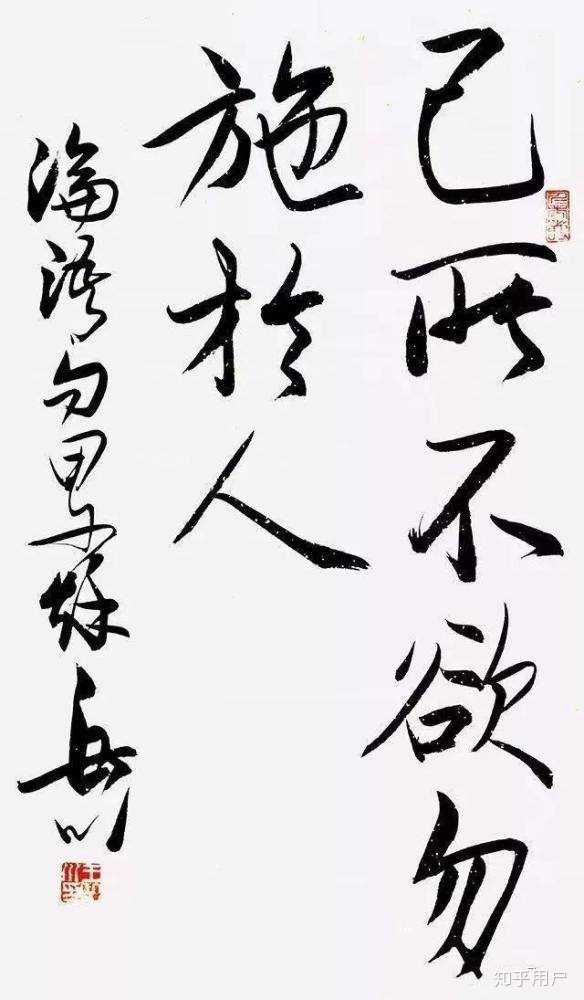 己所不欲勿
施於人
論語句甲午秌岳川
知乎用户